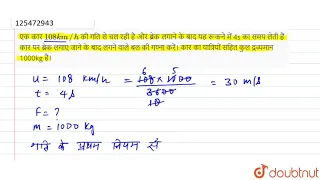 125472943
एक कार 108km / h की गति से चल रही है और ब्रेक लगाने के बाद यह रूकने में 4s का समय लेती है
कार पर ब्रेक लगाए जाने के बाद लगने वाले बल की गणना करें। कार का यात्रियों सहित कुल द्रव्यमान
1000kg है।
u = 108 km/h = 108 × 1000 / 3600 = 30 m/s
6 5
18
t = 4 s
F = ?
m = 1000 kg
गति के प्रथम नियम से
doubtnut